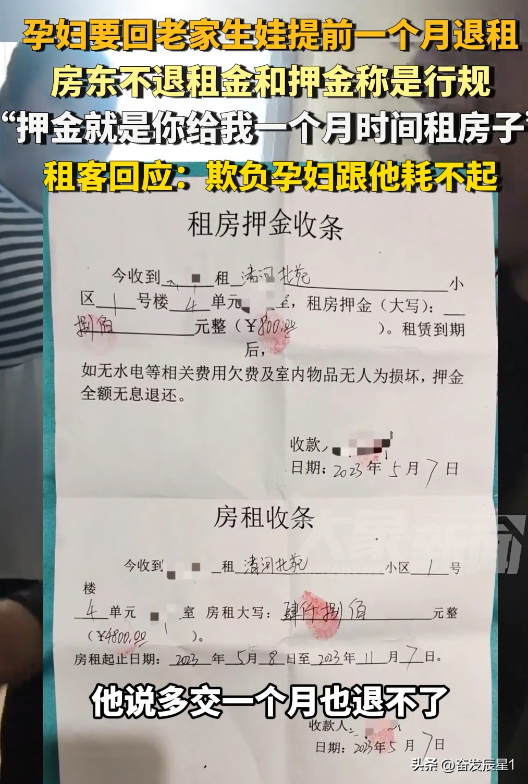 孕妇要回老家生娃提前一个月退租
房东不退租金和押金称是行规
“押金就是你给我一个月时间租房子”
租客回应：欺负孕妇跟他耗不起
租房押金收条
今收到 租 清河北苑 小
区 1 号楼 4 单元 室，租房押金（大写）：
捌佰 元整（￥800.00 ）。租赁到期
后，
如无水电等相关费用欠费及室内物品无人为损坏，押金
全额无息退还。
收款人
日期：2023年 5 月 7 日
房租收条
今收到 租 清河北苑 小区 1 号
楼
4 单元 室 房租大写：肆仟捌佰 元整
（￥4800.00 ）。
房租起止日期：2023 年 5月 8 日至 2023年 11 月 7 日。
大象新闻
他说多交一个月也退不了
收款人：
日期：2023年5月 7 日
头条 @奋发辰星1